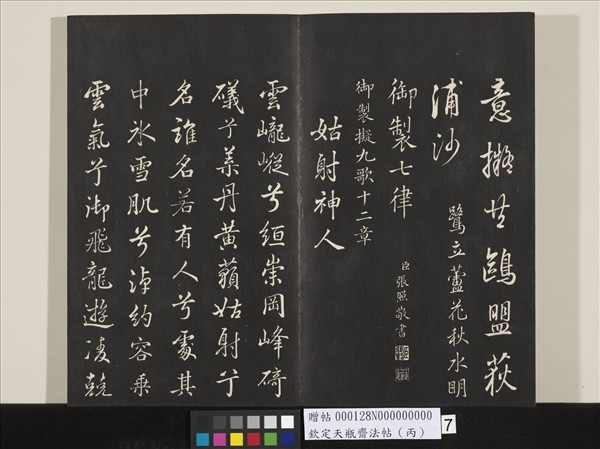 意擬共鷗盟荻
浦沙
鷺立蘆花秋水明
御製七律
臣張照敬書
御製擬九歌十二章
姑射神人
雲巃嵸兮絙崇岡峰碕
礒兮羕丹黃蘋姑射兮
名誰名若有人兮處其
中氷雪肌兮淖約容乘
雲氣兮御飛龍遊凌兢
贈帖 000128N000000000
欽定天瓶齋法帖(丙)
7